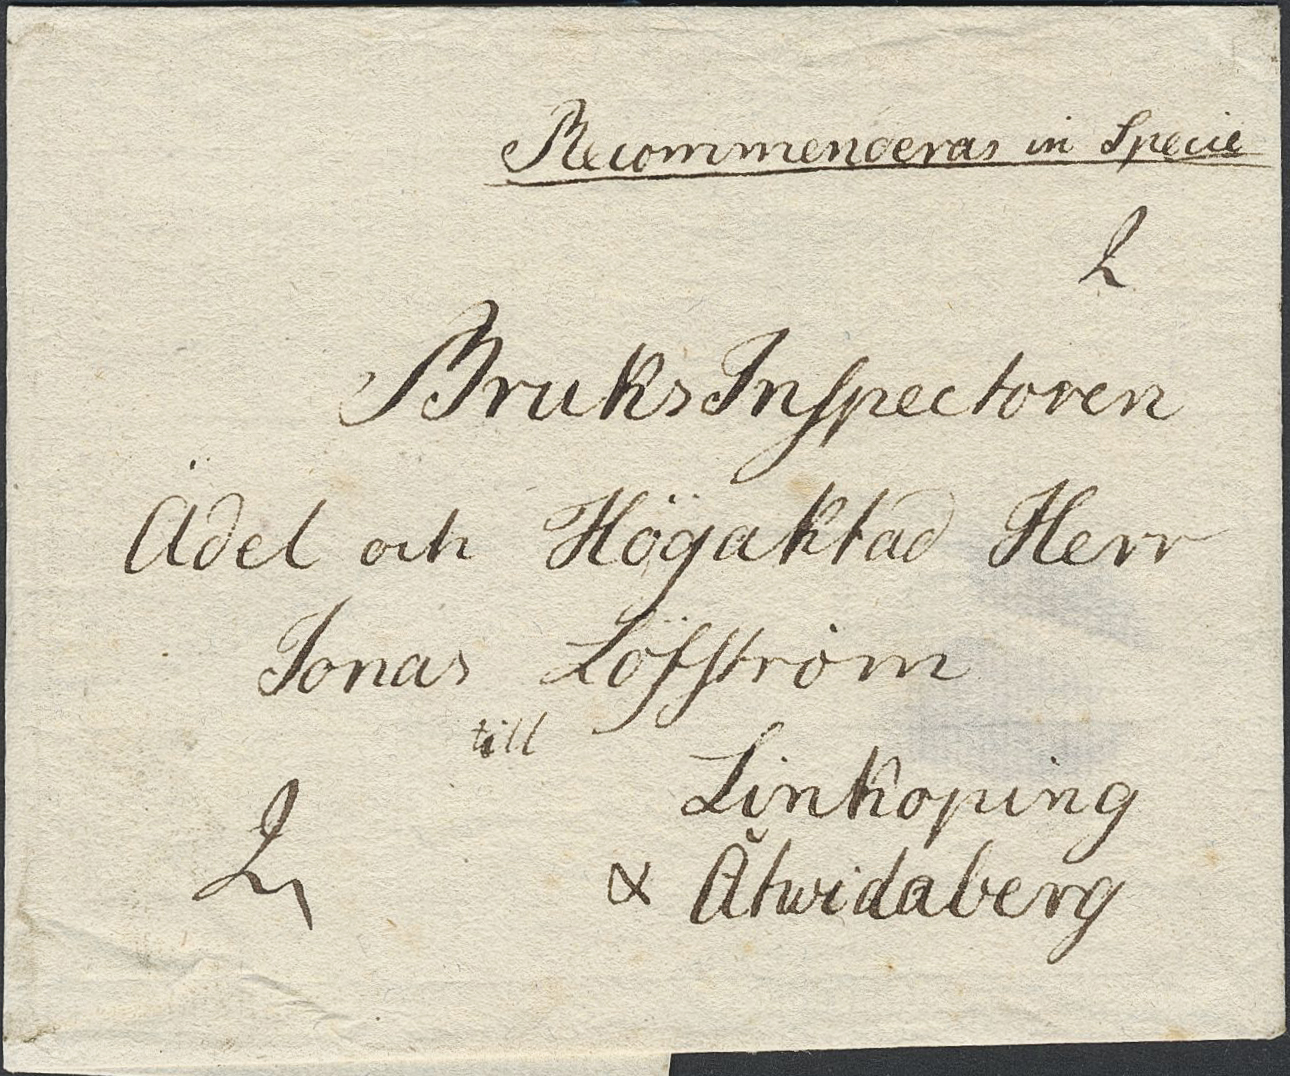 Recommenderas in Specie
BruksInspectoren
Ädel och Högaktad Herr
Jonas Löfström
till
Linkoping
& Åtwidaberg